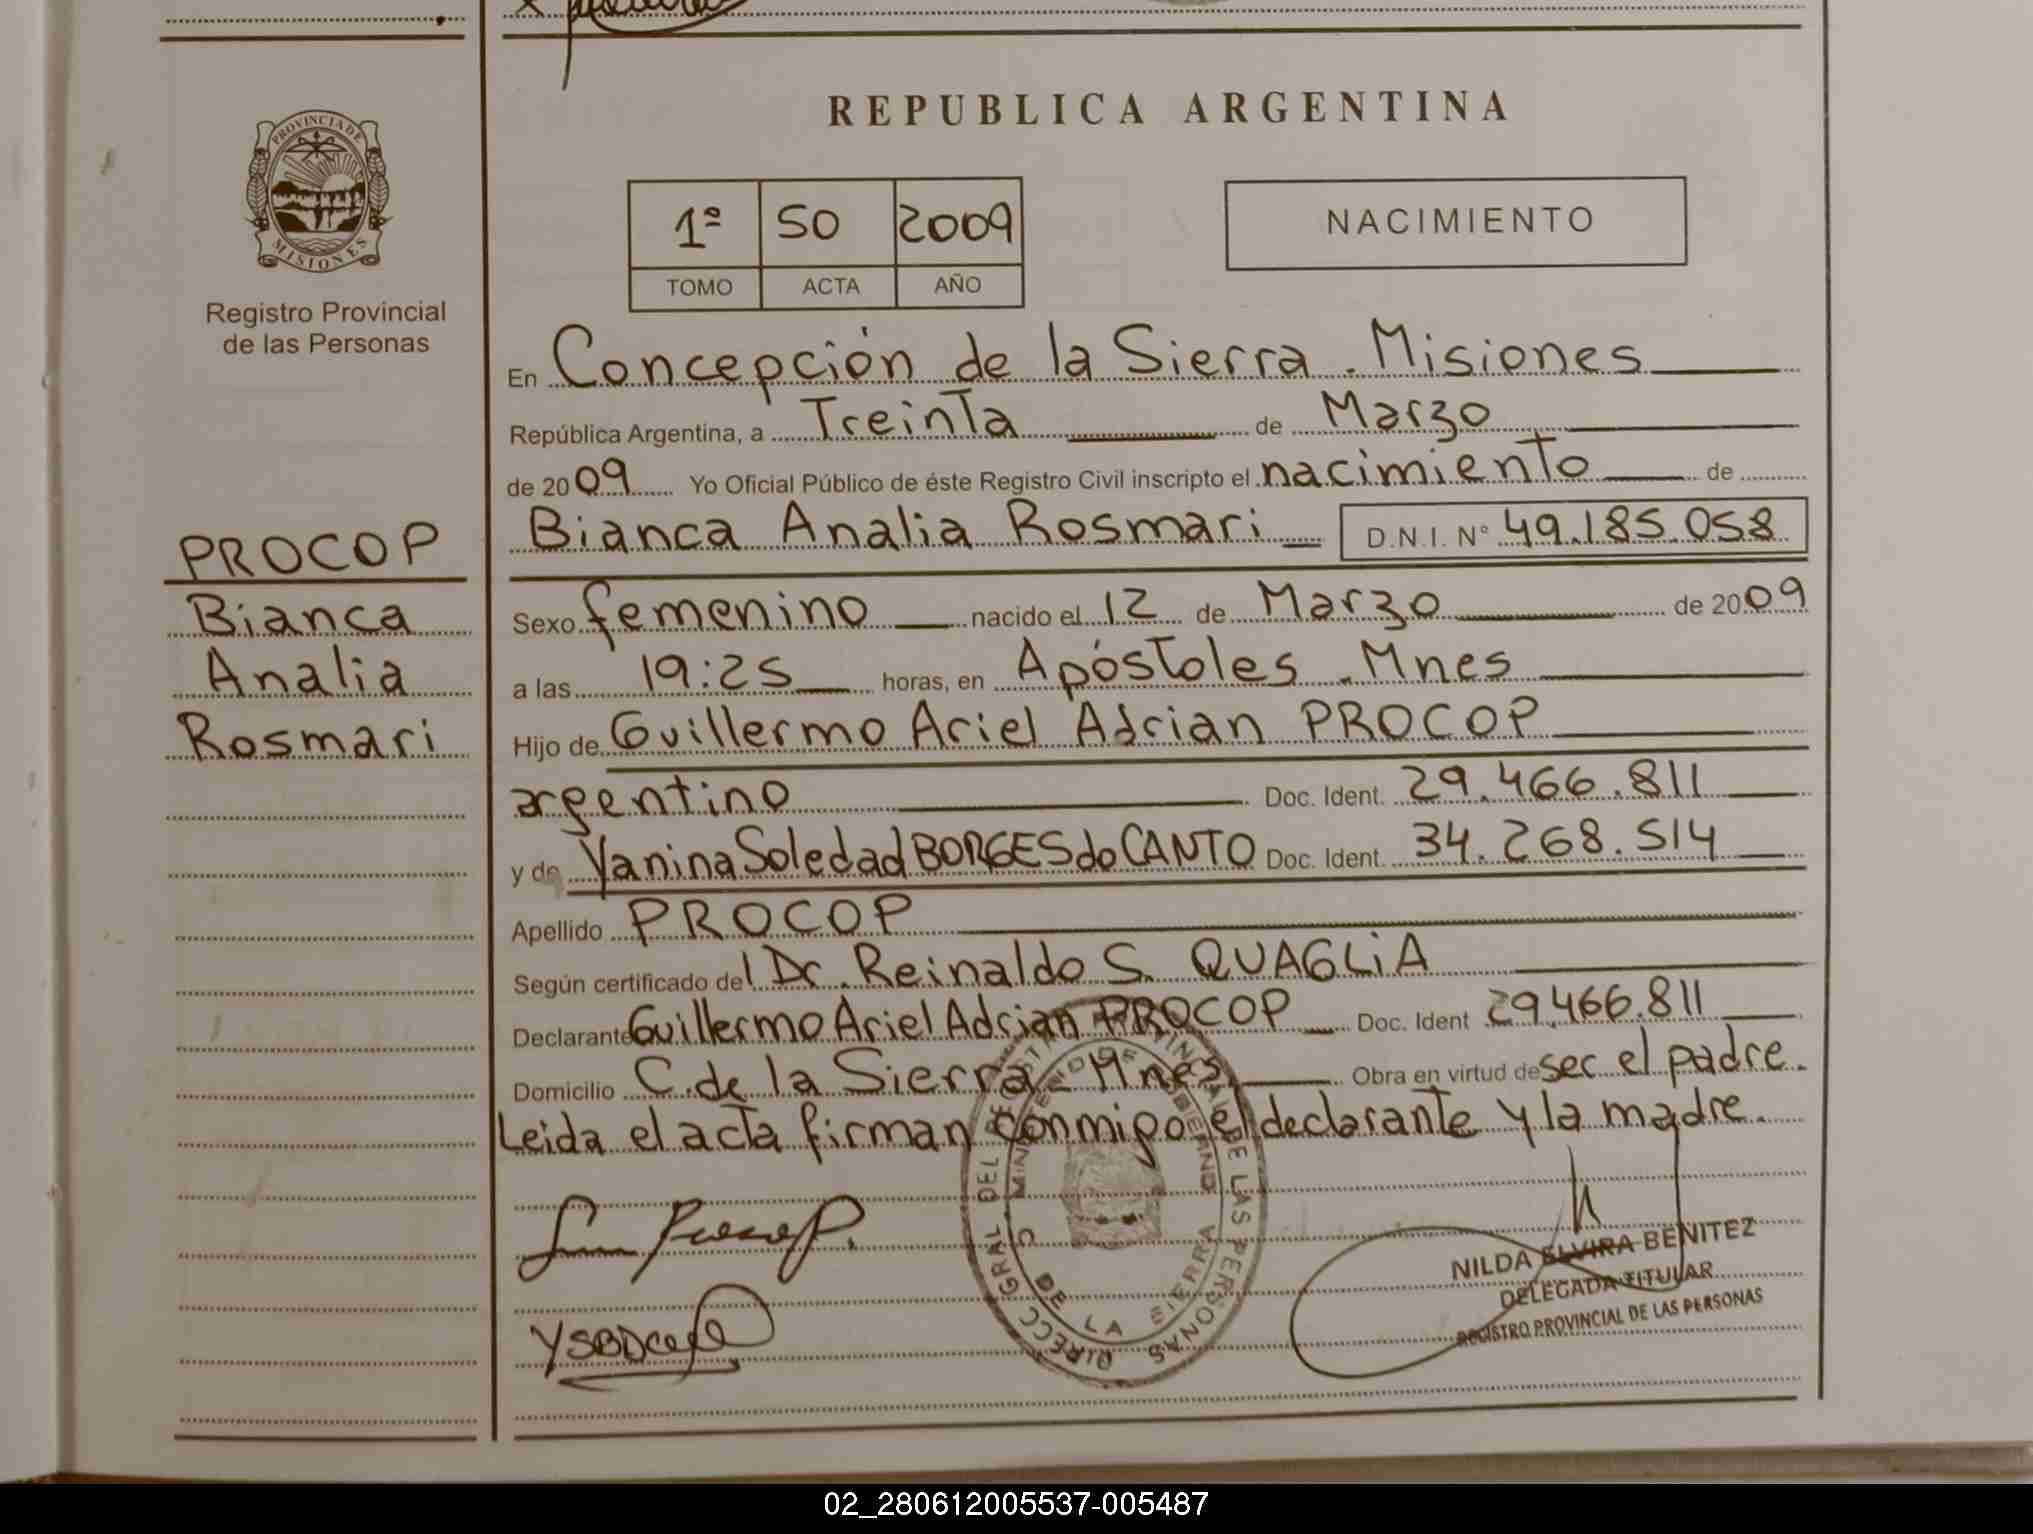 REPUBLICA ARGENTINA
PROVINCIA DE
MISIONES
Registro Provincial
de las Personas
1º 50 2009
TOMO ACTA AÑO
NACIMIENTO
En Concepción de la Sierra. Misiones
República Argentina, a Treinta de Marzo
de 2009 Yo Oficial Público de éste Registro Civil inscripto el nacimiento de
Bianca Analia Rosmari D.N.I. Nº 49.185.058
PROCOP
Bianca
Analia
Rosmari
Sexo femenino nacido el 12 de Marzo de 2009
a las 19:25 horas, en Apóstoles. Mnes
Hijo de Guillermo Ariel Adrian PROCOP
argentino Doc. Ident. 29.466.811
y de Yanina Soledad BORGES do CANTO Doc. Ident. 34.268.514
Apellido PROCOP
Según certificado del Dr. Reinaldo S. QUAGLiA
Declarante Guillermo Ariel Adrian PROCOP Doc. Ident 29.466.811
Domicilio C. de la Sierra - Mnes. Obra en virtud de ser el padre.
Leida el acta firman conmigo el declarante y la madre.
NILDA ELVIRA BENITEZ
DELEGADA TITULAR
REGISTRO PROVINCIAL DE LAS PERSONAS
02_280612005537-005487